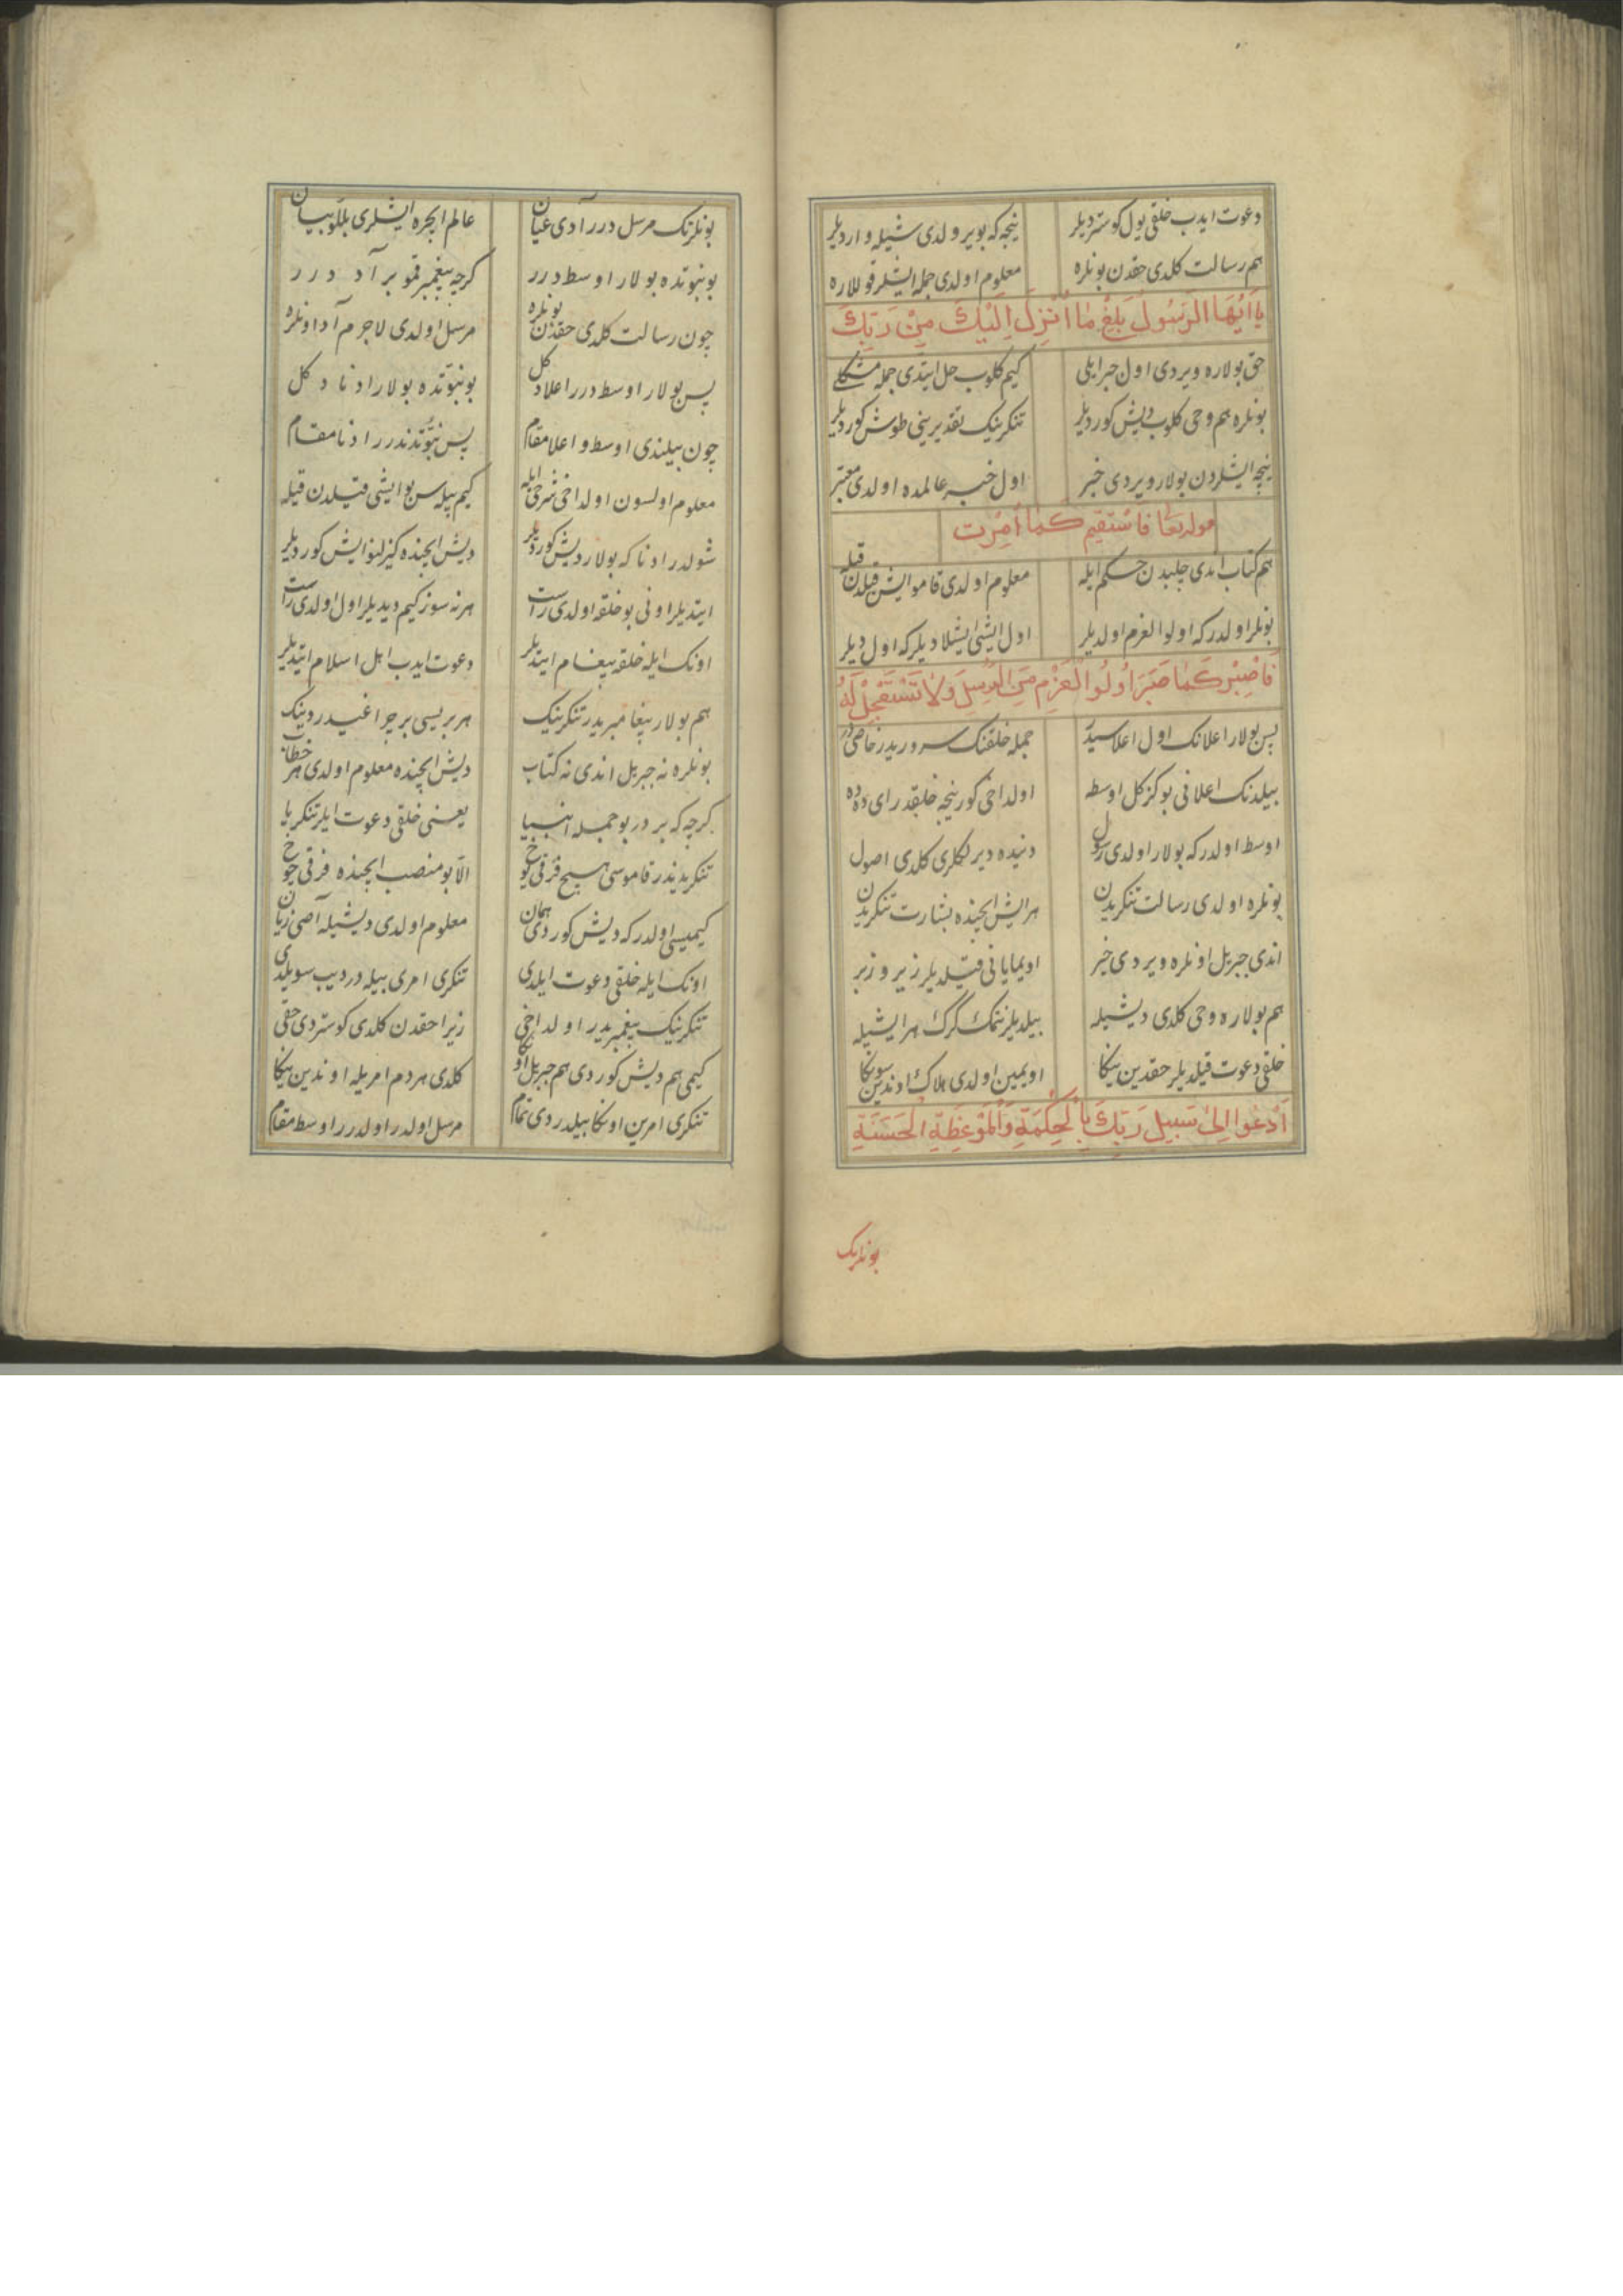 دعوت ایدب خلقی یول کوستردیلر نیجه که بویرولدی شیله واردیلر
هم رسالت کلدی حقدن بونلره معلوم اولدی جمله ایشلر قوللاره
یَا اَیُّهَا الرَسُولُ بَلِّغْ مَا اُنْزِلَ اِلَیْكَ مِنْ رَبِّكَ
حق بولاره ویردی اول جبرایلی کیم کلوب حل ایتدی جمله مشکلی
بونلره هم وحی کلوب دیش کوردیلر تنکرینیک تقدیرینی طوش کوردیلر
نیچه ایشلردن بولار ویردی خبر اول خبر عالمده اولدی معتبر
فَاسْتَقِیم كَمَا اُمِرْت
هم کتاب اندی چلبدن حکم ایله معلوم اولدی قامو ایش قیلدن قیله
بونلر اولدر که اولوالعزم اولدیلر اول ایشی ایشلادیلر که اول دیلر
فَاصْبِرْ كَمَا صَبَرَ اُولُوا الْعَزْمِ مِنَ الرُسِلِ وَلَا تَسْتَعْجِلْ لَهُ
پس بولار اعلانک اول اعلاسیدر جمله خلقنک سروریدر خاصیدر
بیلدنک اعلانی بو کز کل اوسطه اولداخی کور نیجه خلقدر ای دده
اوسط اولدر که بولار اولدی رسول دنیده دیرلکلری کلدی اصول
بونلره اولدی رسالت تنکریدن هر ایش ایچنده بشارت تنکریدن
اندی جبریل اونلره ویردی خبر اویمایانی قیلدیلر زیر و زبر
هم بولاره وحی کلدی دیشیله بیلدیلر نتمک کرك هر ایشیله
خلقی دعوت قیلدیلر حقدین ینکا اویمین اولدی هلاك اوندین سونکا
اَدْعُوا اِلیٰ سَبِیلِ رَبِّكَ بِالْحِكْمَةِ وَالْمَوْعِظَةِ الْحَسَنَةِ
بونلرنک
بونلرنک مرسل درر آدی عیان عالم ایچره ایشلری بللو بیان
بو نبوتده بولار اوسط درر کرچه پیغمبر قمو بر آد درر
چون رسالت کلدی حقدن بونلره مرسل اولدی لاجرم آد اونلره
پس بولار اوسط درر اعلا دکل بو نبوتده بولار ادنا دکل
چون بیلندی اوسط و اعلا مقام پس نبوتدندرر ادنا مقام
معلوم اولسون اولداخی شرح ایله کیم بیله سن بو ایشی قیلدن قیله
شولدر ادنا که بولار دیش کوردیلر دیش ایچنده کیزلنو ایش کوردیلر
ایتدیلر اونی بو خلقه اولدی راست هر نه سوز کیم دیدیلر اول اولدی راست
اونک ایله خلقه پیغام ایتدیلر دعوت ایدب اهل اسلام ایتدیلر
هم بولار پیغامبریدر تنکرینیک هر بریسی بر چراغیدر دینک
بونلره نه جبریل اندی نه کتاب دیش ایچنده معلوم اولدی هر خطاب
کرچه که بر در بو جمله انبیا یعنی خلقی دعوت ایلر تنکریا
تنکریدیندر قاموسی هیچ فرقی یوخ الّا بو منصب ایچنده فرقی چوخ
کیمیسی اولدر که دیش کوردی همان معلوم اولدی دیشیله آصی زیان
اونک ایله خلقی دعوت ایلدی تنکری امری بیله در دیب سویلدی
تنکرینیک پیغمبریدر اولداخی زیرا حقدن کلدی کوستردی حقی
کیمی هم دیش کوردی هم جبریل اونکا کلدی هر دم امریله اوندین ینکا
تنکری امرین اونکا بیلدردی تمام مرسل اولدر اولدرر اوسط مقام